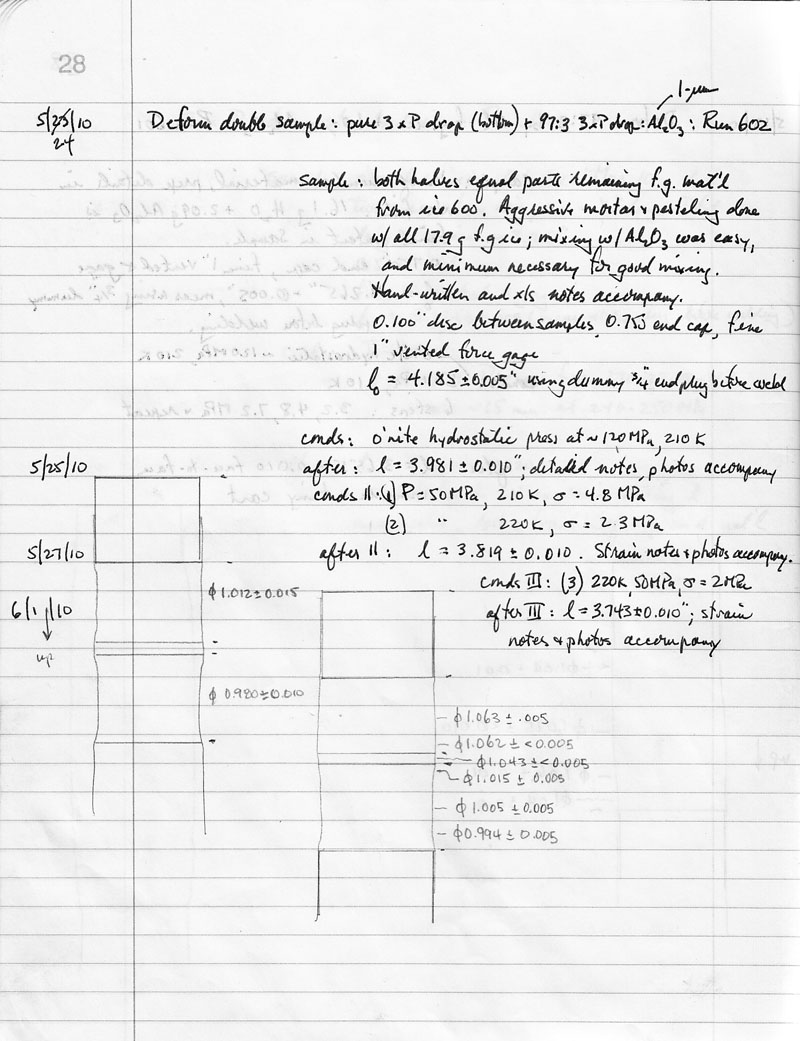 28
1-µm
5/25/10 Deform double sample: pure 3xP drop (bottom) + 97:3 3xP drop:Al2O3: Run 602
24
sample: both halves equal parts remaining f.g. mat'l
from ice 600. Aggressive mortar & pesteling done
w/ all 17.9 g f.g ice; mixing w/ Al2O3 was easy,
and minimum necessary for good mixing.
Hand-written and xls notes accompany.
0.100" disc between samples, 0.750 end cap, fine
1" vented force gage
l0 = 4.185 ± 0.005" using dummy 3/4" endplug before weld
conds: o'nite hydrostatic press at ~120 MPa, 210 K
5/25/10 after: l = 3.981 ± 0.010"; detailed notes, photos accompany
conds II: (1) P = 50 MPa, 210 K, σ = 4.8 MPa
(2) " 220 K, σ = 2.3 MPa
5/27/10 after II: l = 3.819 ± 0.010. Strain notes & photos accompany.
conds III: (3) 220K, 50MPa, σ = 2MPa
ϕ 1.012 ± 0.015
6/1/10 after III: l = 3.743 ± 0.010"; strain
notes & photos accompany
ϕ 0.980 ± 0.010
ϕ 1.063 ± .005
ϕ 1.062 ± <0.005
ϕ 1.043 ± <0.005
ϕ 1.015 ± 0.005
ϕ 1.005 ± 0.005
ϕ 0.994 ± 0.005